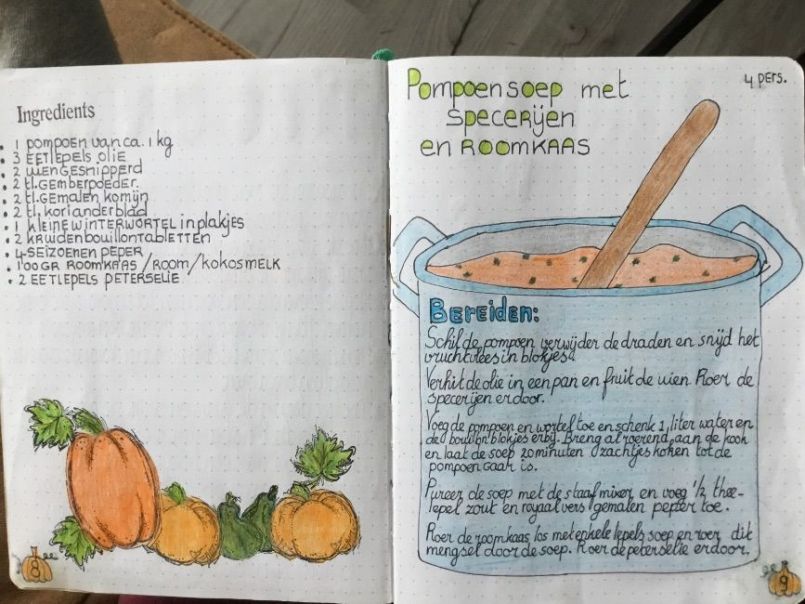 Ingredients
• 1 pompoen van ca. 1 kg
• 3 eetlepels olie
• 2 uien gesnipperd
• 2 tl. gemberpoeder.
• 2 tl. gemalen komijn
• 2 tl. korianderblad
• 1 kleine winterwortel in plakjes
• 2 kruidenbouillontabletten
• 4-seizoenen peper
• 100 gr roomkaas/room/kokosmelk
• 2 eetlepels peterselie
8
4 pers.
Pompoensoep met
specerijen
en roomkaas
Bereiden:
Schil de pompoen verwijder de draden en snijd het
vruchtvlees in blokjes.
Verhit de olie in een pan en fruit de uien Roer de
specerijen erdoor.
Voeg de pompoen en wortel toe en schenk 1 liter water en
de bouillon blokjes erbij. Breng al roerend aan de kook
en laat de soep 20 minuten zachtjes koken tot de
pompoen gaar is.
Pureer de soep met de staafmixer en voeg 1/2 thee-
lepel zout en royaal vers gemalen peper toe.
Roer de roomkaas los met enkele lepels soep en roer dit
mengsel door de soep. Roer de peterselie erdoor.
9